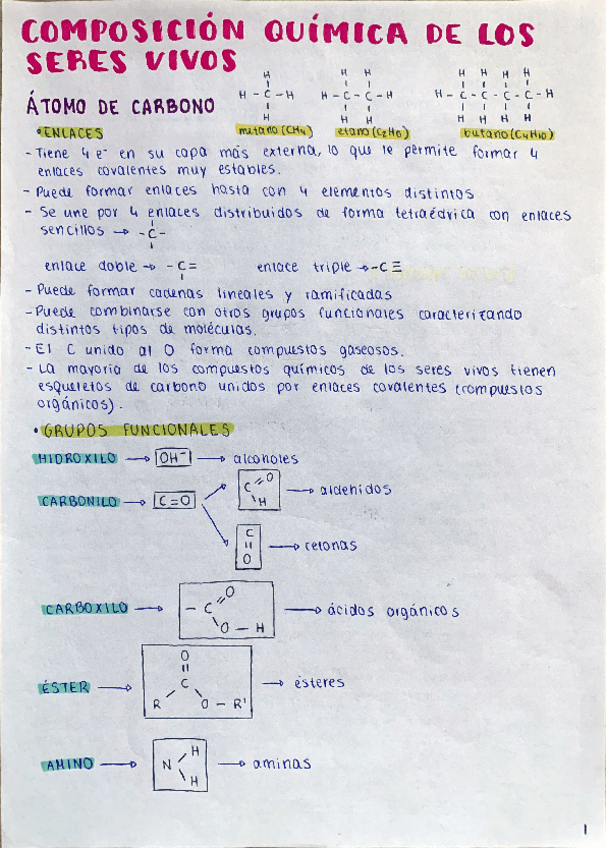 COMPOSICIÓN QUÍMICA DE LOS
SERES VIVOS
ÁTOMO DE CARBONO
H
H - C - H
H
H H
H - C - C - H
H H
H H H H
H - C - C - C - C - H
H H H H
metano (CH4) etano (C2H6) butano (C4H10)
• ENLACES
- Tiene 4 e⁻ en su capa más externa, lo que le permite formar 4
enlaces covalentes muy estables.
- Puede formar enlaces hasta con 4 elementos distintos
- Se une por 4 enlaces distribuidos de forma tetraédrica con enlaces
sencillos → -C-
enlace doble → -C= enlace triple → -C≡
- Puede formar cadenas lineales y ramificadas
- Puede combinarse con otros grupos funcionales caracterizando
distintos tipos de moléculas.
- El C unido al O forma compuestos gaseosos.
- La mayoría de los compuestos químicos de los seres vivos tienen
esqueletos de carbono unidos por enlaces covalentes (compuestos
orgánicos).
• GRUPOS FUNCIONALES
HIDROXILO → OH⁻ → alcoholes
CARBONILO → C=O
C=O
H
→ aldehidos
C
=
O
→ cetonas
CARBOXILO → - C = O
O - H
→ ácidos orgánicos
O
=
C
R O - R'
ÉSTER → → ésteres
AMINO → N
H
H
→ aminas
1